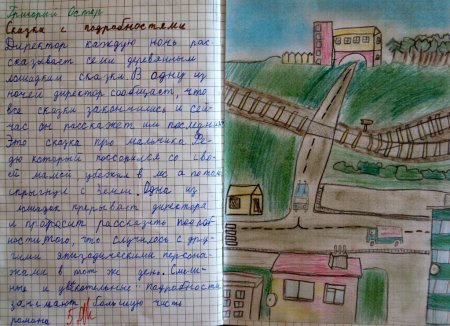 Григорий Остер
Сказка с подробностями
Директор каждую ночь рас-
сказывает семи деревянным
лошадкам сказки. В одну из
ночей директор сообщает, что
все сказки закончились и сей-
час он расскажет им последнюю.
Это сказка про мальчика Фе-
дю который поссорился со сво-
ей мамой убежал в а потом
спрыгнул с Одна из
лошадок прерывает директора
и просит рассказать подроб-
ности того, что случилось с дру-
гими эпизодическими персона-
жами в тот же день. Смеш-
ные и увлекательные подробности
занимают большую часть
романа
5